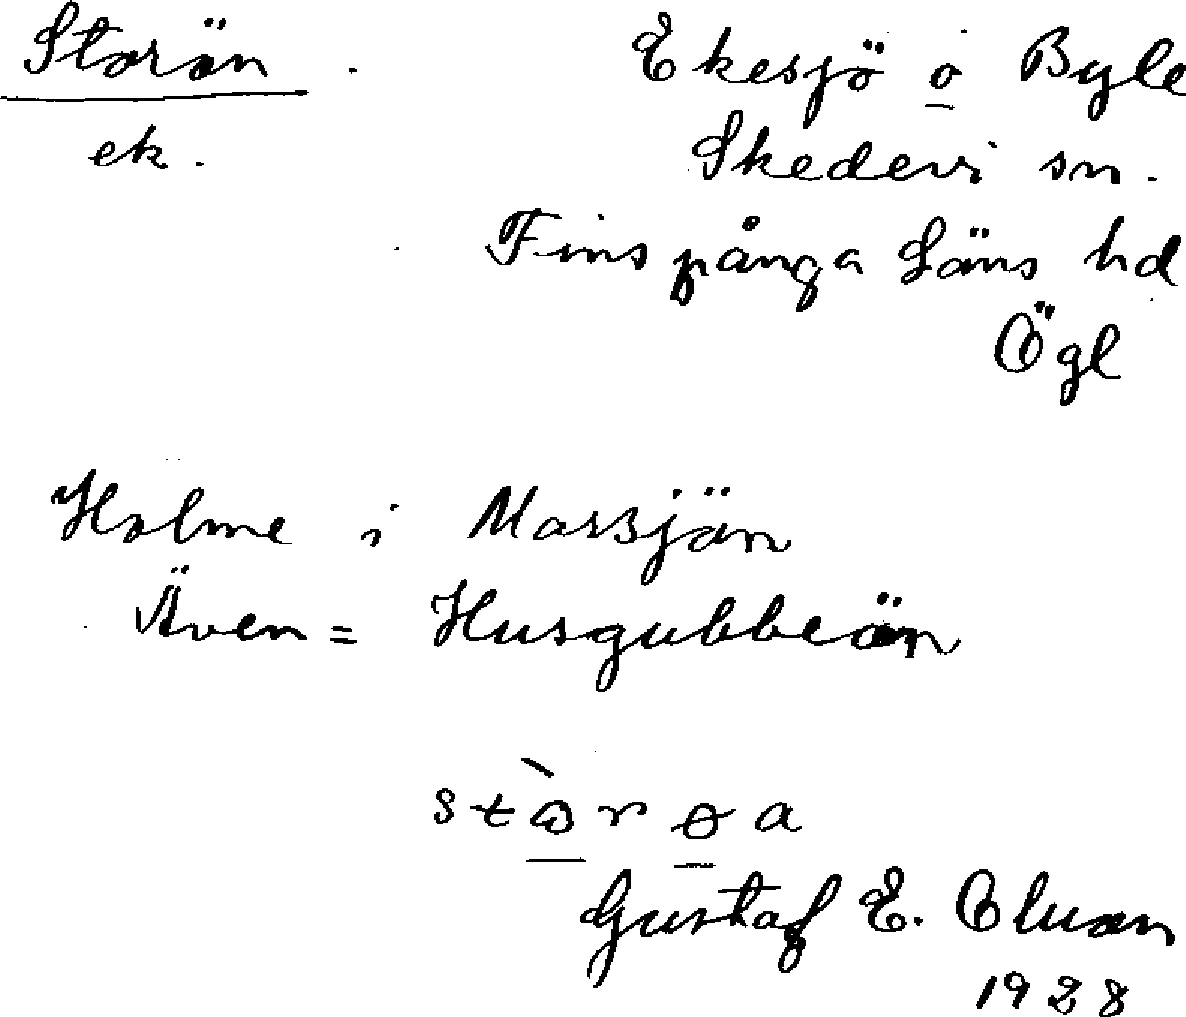 Storön Ekesjö o Byle
ek. Skedevi sn.
Finspånga Läns hd
Ögl
Holme i Mossjön
Även = Husgubbeön
Gustaf E.
1928